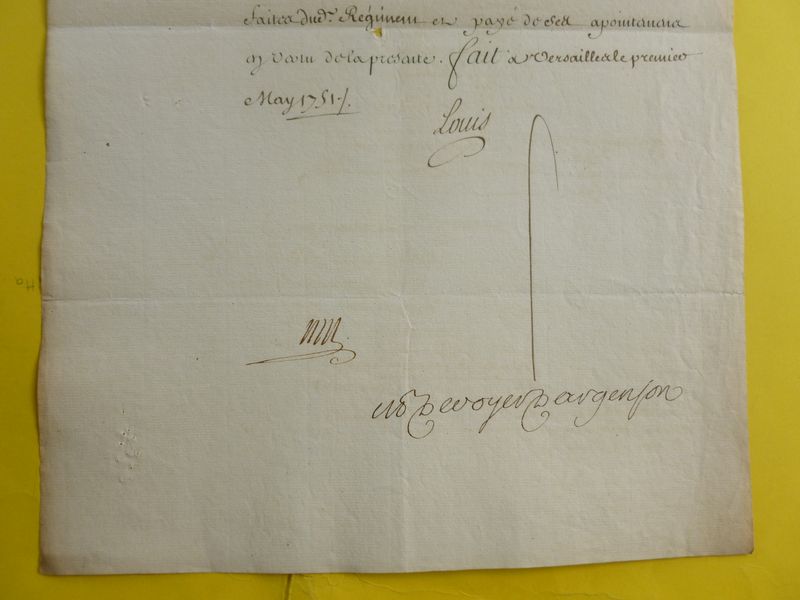 faites dud. Régiment et payé de ses apointemens
en vertu de la presente. fait a Versailles le premier
May 1751./.
Louis
M de voyer D'argenson